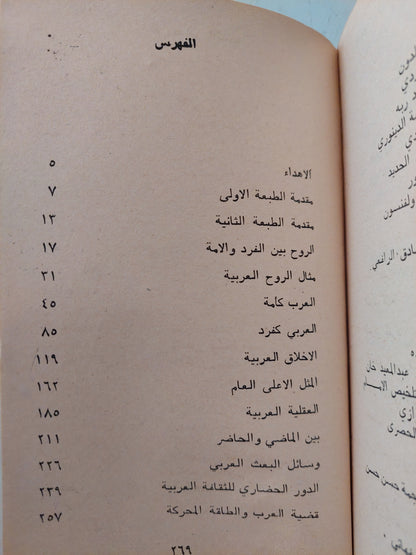 الفهرس
الاهداء ٥
مقدمة الطبعة الاولى ٧
مقدمة الطبعة الثانية ١٣
الروح بين الفرد والامة ١٧
مثال الروح العربية ٣١
العرب كأمة ٤٥
العربي كفرد ٨٥
الاخلاق العربية ١١٩
المثل الاعلى العام ١٦٢
العقلية العربية ١٨٥
بين الماضي والحاضر ٢١١
وسائل البعث العربي ٢٢٦
الدور الحضاري للثقافة العربية ٢٣٩
قضية العرب والطاقة المحركة ٢٥٧
٢٦٩
ربه
الدينوري
الحديد
ولفنسون
الرافعي
عبدالمعيد خان
تلخيص
الحصرى
حسن حسن